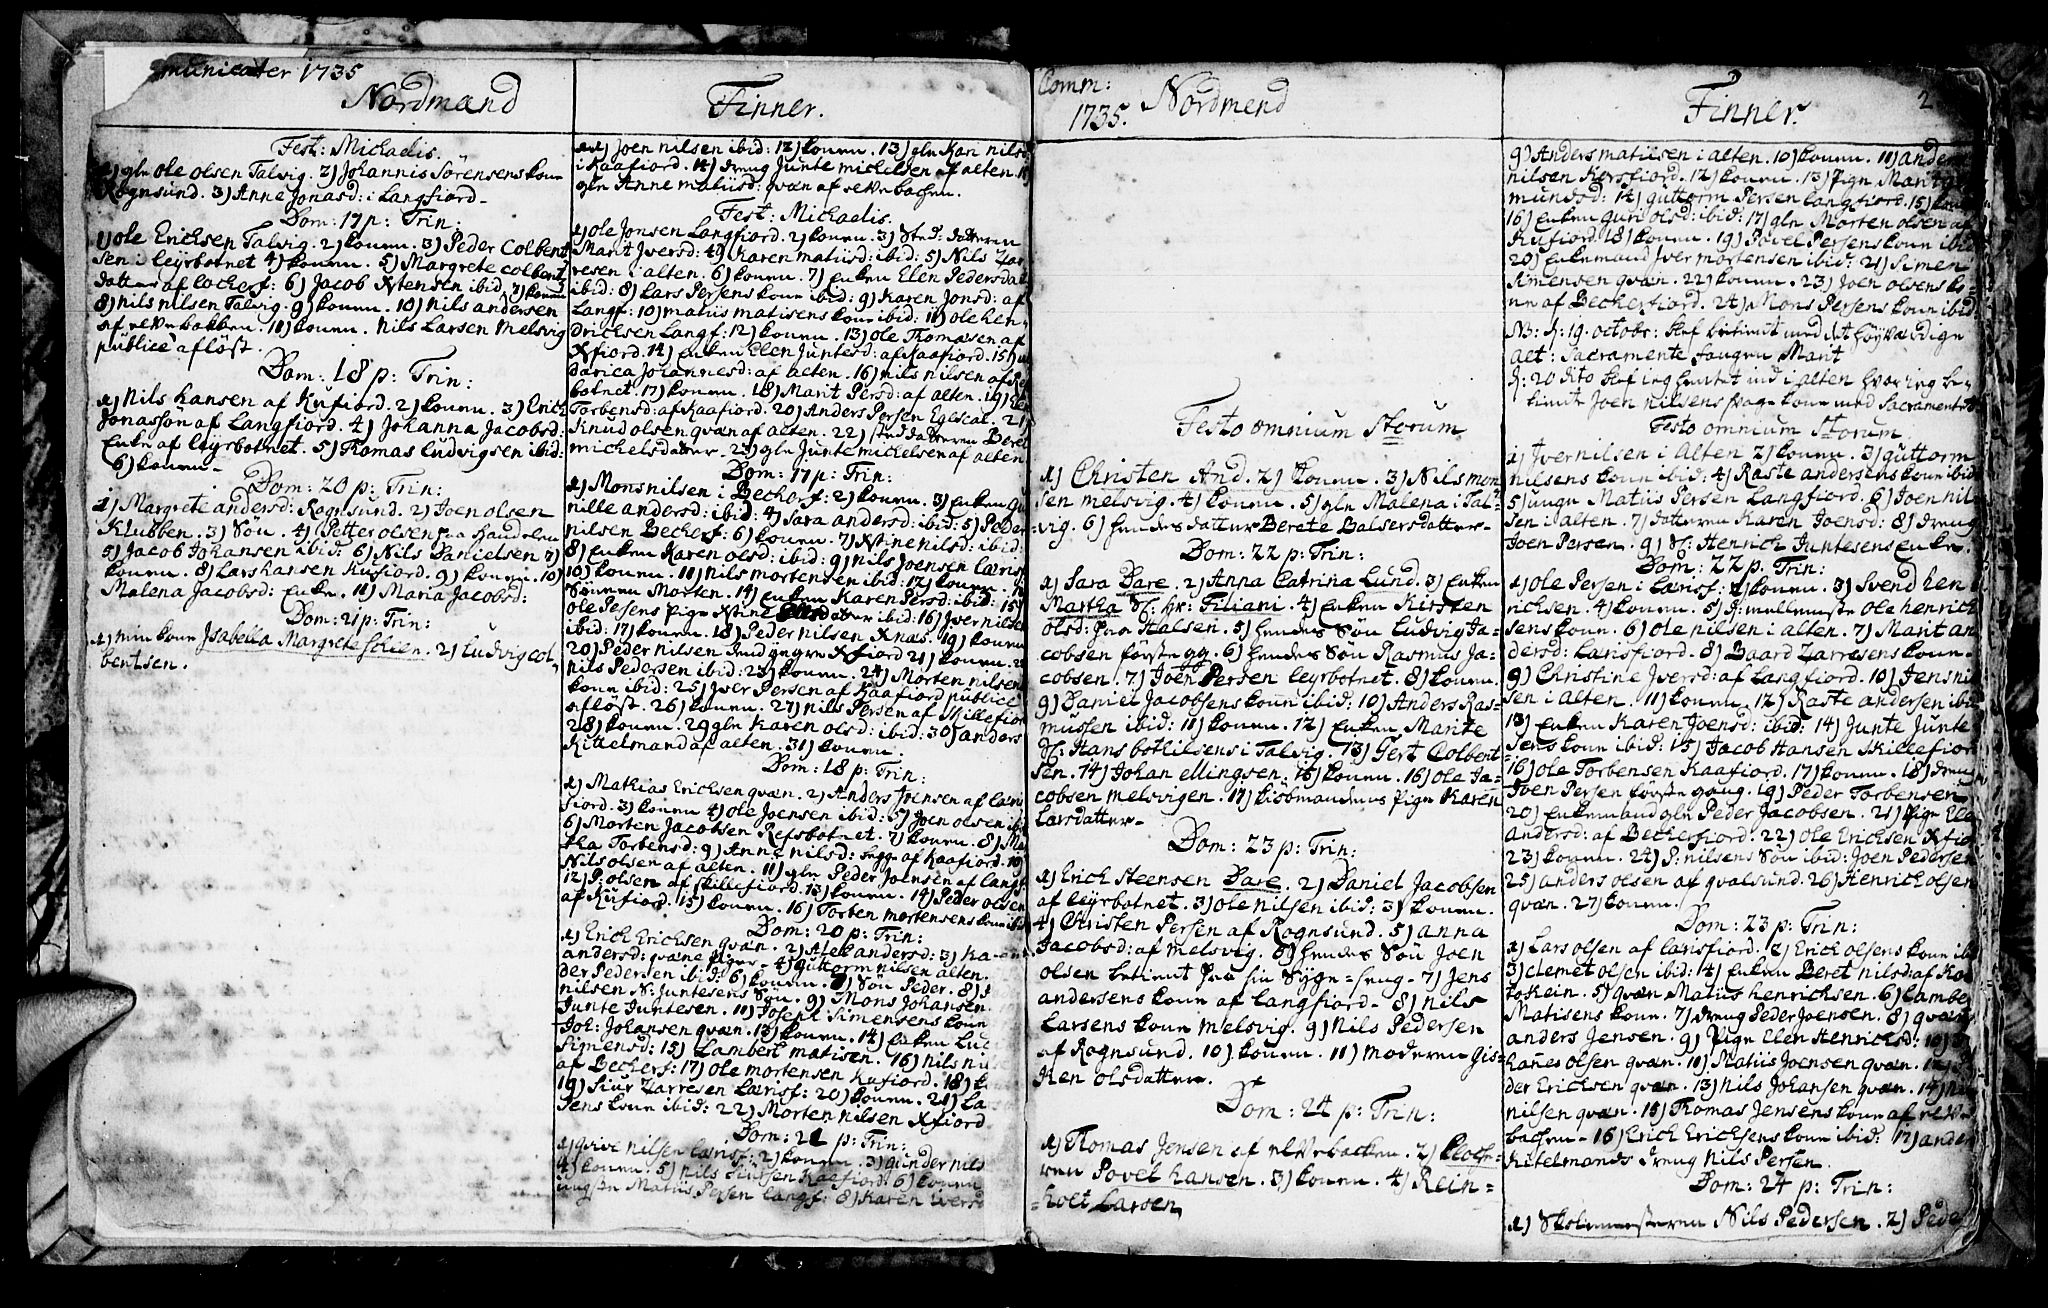 municater 1735
Nordmænd
Fest: Michaelis.
1) gln ole olsen Talvig. 2) Johannis Sörensens kone
Rognsund. 3) Anne Jonasd: i Langfiord.
Dom: 17 p: Trin:
1) ole Erichsen Talvig. 2) konen. 3) Peder Colbent
sen i leyrbotnet 4) konen. 5) Margrete Colbent
datter af lockerf: 6) Jacob Xstensen ibid 7) konen
8) nils nilsen Talvig. 9) konen. 10) nils andersen
af elvebakken. 11) konen. Nils Larsen Melsvig
publice afløst.
Dom: 18 p: Trin:
1) Nils hansen af Kufiord. 2) konen. 3) Erich
Jonassön af Langfiord. 4) Johanna Jacobsd:
Enke af leyrbotnet. 5) Thomas Ludvigsen ibid:
6) konen
Dom: 20 p: Trin:
1) Margrete andersd: Rognsund. 2) Joen olsen
Klubben. 3) Søn. 4) Petter olsen paa Handelen
5) Jacob Johansen ibid: 6) Nils Danielsen 7)
konen. 8) Lars hansen Kufiord. 9) konen. 10)
Malena Jacobsd: Enke. 11) Maria Jacobsd:
Dom: 21 p: Trin:
1) min kone Isabella Margrete 2) Ludvig col
bentsen.
Finner.
11) Joen nilsen ibid: 12) konen. 13) gln Kari nilsd
i Kaafiord. 14) dreng Junte michelsen af alten.
gln Anne matiisd: qvæn af elvebachen.
Fest: Michaelis.
1) ole Jonsen Langfiord. 2) konen. 3) Sted: datteren
Marit Jversd: 4) Karen matiisd: ibid: 5) Nils Zar
resen i alten. 6) konen. 7) Enken Elen Pedersdat
ibid: 8) Lars Persens kone ibid: 9) Karen Jonsd: af
Langf: 10) matiis matisens kone ibid: 11) ole hen
drichsen Langf: 12) konen. 13) ole Thomasen af
Xfiord. 14) Enken Elen Juntesd: af Kaafiord. 15)
darica Johannesd: af alten. 16) nils nilsen af Ref
botnet. 17) konen. 18) Marit Persd: af alten. 19) Elen
Torbensd: af Kaafiord. 20) Anders Persen Egescal. 21)
Knud olsen qvæn af alten. 22) steddatteren Beret
michelsdatter. 23) gln Junte michelsen af alten
Dom: 17 p: Trin:
1) Mons nilsen i Beckerf: 2) konen. 3) Enken Gu
nille andersd: ibid: 4) Sara andersd: ibid: 5) Peder
nilsen Beckerf: 6) konen. 7) Xstine nilsd: ibid:
8) Enken Karen olsd: ibid: 9) nils Joensen Lærisf
10) konen. 11) nils mortensen ibid: 12) konen.
Sønnen Morten. 14) Enken Karen Persd: ibid: 15)
ole Persens Pige Xstine ibid: 16) Jver nilsen
ibid: 17) konen. 18) Peder nilsen Xnæs. 19) konen
20) Peder nilsen Xfiord 21) konen. 22)
nils Pedersen ibid: 23) konen. 24) Morten nilsens
kone ibid: 25) Jver Persen af Kaafiord publice
afløst. 26) konen. 27) nils Persen af Skillefior
28) konen. 29 gln Karen olsd: ibid: 30) anders
Kittelmand af alten. 31) konen.
Dom: 18 p: Trin:
1) Mathias Erichsen qvæn. 2) Anders Joensen af Læris
fiord. 3) konen 4) ole Joensen ibid: 5) Joen olsen ibid
6) Morten Jacobsen Refsbotnet. 7) konen. 8) Ma
tha Torbensd: 9) Anne nilsd: begge af Kaafiord. 10)
Nils olsen af alten. 11) gln Peder Joensen af Langf
12) P: olsen af skillefiord. 13) konen. 14) Peder olsen
af Kufiord. 15) konen. 16) Torben mortensens kone
Dom: 20 p: Trin:
1) Erich Erichsen qvæn. 2) andersd: 3) Ka
andersd: qvæne Piger. 4) Guttorm nilsen alten.
der Pedersen ibid: 6) konen. 7) Søn Peder. 8)
nilsen N: Juntesens Søn. 9) Mons Johansen.
Junte Juntesen. 11) Joseph Simensens kone
Joh: Johansen qvæn. 13) konen. 14) Enken Luci
Simensd: 15) Lambert matisen. 16) Nils ni
af Beckerf: 17) ole mortensen Kufiord. 18)
19) Siur Zarresen Lærisf: 20) konen. 21) Lar
sens kone ibid: 22) Morten nilsen Xfiord
Dom: 21 p: Trin:
1) qvive nilsen Lærisf: 2) konen. 3) Gunder nils
4) konen. 5) nils Kaafiord. 6) konen
ungste Matiis Persen Langf: 8) Karen iversd
Comm:
1735. Nordmend
Festo omnium Storum
1) Christen And. 2) konen. 3) Nils mon
sen melsvig. 4) konen. 5) gln Malena i Tal
vig. 6) hendes datter Berete Balsersdatter
Dom: 22 p: Trin:
1) Sara Dare. 2) Anna Catrina Lund. 3) Enken
Martha Sl: hr: Filiam. 4) Enken Kirsten
olsd: paa Halsen. 5) hendes Søn Ludvig Ja=
cobsen første gg. 6) hendes Søn Rasmus Ja=
cobsen. 7) Joen Persen leyrbotnet. 8) konen.
9) Daniel Jacobsens kone ibid: 10) Anders Ras=
mussen ibid: 11) konen. 12) Enken Marite
Sl: Hans bothilsens i Talvig. 13) Gert Colbent
sen. 14) Johan ellingsen. 15) konen. 16) ole Ja=
cobsen melsvigen. 17) kiøbmandens Pige Karen
Larsdatter
Dom: 23 p: Trin:
1) Erich Steensen Dare. 2) Daniel Jacobsen
af leyrbotnet. 3) ole nilsen ibid: 3) konen.
4) Christen Persen af Rognsund. 5) anna
Jacobsd: af melsvig. 6) hendes Søn Joen
olsen betient paa sin Syge=seng. 7) Jens
andersens kone af Langfiord. 8) Nils
Larsens kone melsvig. 9) Nils Pedersen
af Rognsund. 10) konen. 11) moderen Gis
ken olsdatter.
Dom: 24 p: Trin:
1) Thomas Jonsen af elvebacken. 2) Klocke=
ren Povel hansen. 3) konen. 4) Rein=
=holt Larsen
2
Finner.
9) Anders matiisen i alten. 10) konen. 11) anders
nilsen Korsfiord. 12) konen. 13) Pign Marit
mundsd: 14) guttorm Persen Langfiord. 15) konen
16) Enken guri olsd: ibid: 17) gln Morten olsen af
Kufiord. 18) konen. 19) Povel Persens kone ibid
20) Enkemand Jver mortensen ibid: 21) Simen
Simensen qvæn. 22) konen. 23) Joen olsens ko
ne af Beckerfiord. 24) Mons Persens kone ibid:
NB: d: 19 octobr: blef betient med det høyværdige
alt: Sacramente Marit
d: 20 dito blef jeg hentet ind i alten hvor jeg be
tiente Joen nilsens svage kone med Sacramentet
Festo omnium Storum
1) Jver nilsen i alten 2) konen. 3) guttorm
nilsens kone ibid: 4) Raste andersens kone ibid
5) unge Matiis Persen Langfiord. 6) Joen nil
sen i alten. 7) datteren Karen Joensd: 8) dreng
Joen Persen. 9) Sl: Henrich Juntesens Enke.
Dom: 22 p: Trin:
1) ole Persen i Lærisf: 2) konen. 3) Svend hen
richsen. 4) konen. 5) d: mellemste ole henrich
sens kone. 6) ole nilsen i alten. 7) Marit an
dersd: Lærisfiord. 8) Baard Zarresens kone.
9) Christine Jversd: af Langfiord. 10) Jens nil
sen i alten. 11) konen. 12) Raste andersen ibid
13) Enken Karen Joensd: ibid: 14) Junte Junte
sens kone ibid: 15) Jacob Hansen skillefior
16) ole Torbensen Kaafiord. 17) konen. 18) dreng
Joen Persen første gang. 19) Peder Torbensen
20) Enkemand gln Peder Jacobsen. 21) Pige Ele
Andersd: af Beckerfiord. 22) ole Erichsen Xfior
23) konen. 24) P: nilsens Søn ibid: Joen Pedersen
25) anders olsen af qvalsund. 26) Henrich olsen
qvæn. 27) konen.
Dom: 23 p: Trin:
1) Lars olsen af Lærisfiord. 2) Erich olsens kone ib
3) clemet olsen ibid: 4) Enken Beret nilsd: af Ko
tokein. 5) qvæn Matiis henrichsen. 6) Lambe
Matisens kone. 7) dreng Peder Joensen. 8) qvæn
anders Jensen. 9) Pige Elen Henrichsd: 10)
hanes olsen qvæn. 11) Matiis Joensen qvæn. 12)
der Erichsen qvæn. 13) Nils Johansen qvæn. 14)
nilsen qvæn. 15) Thomas Jensens kone af elve
bachen. 16) Erich Erichsens kone ibid: 17) ander
Kitelmands dreng Nils Persen.
Dom: 24 p: Trin:
1) Skolemesteren Nils Pedersen. 2) Pede